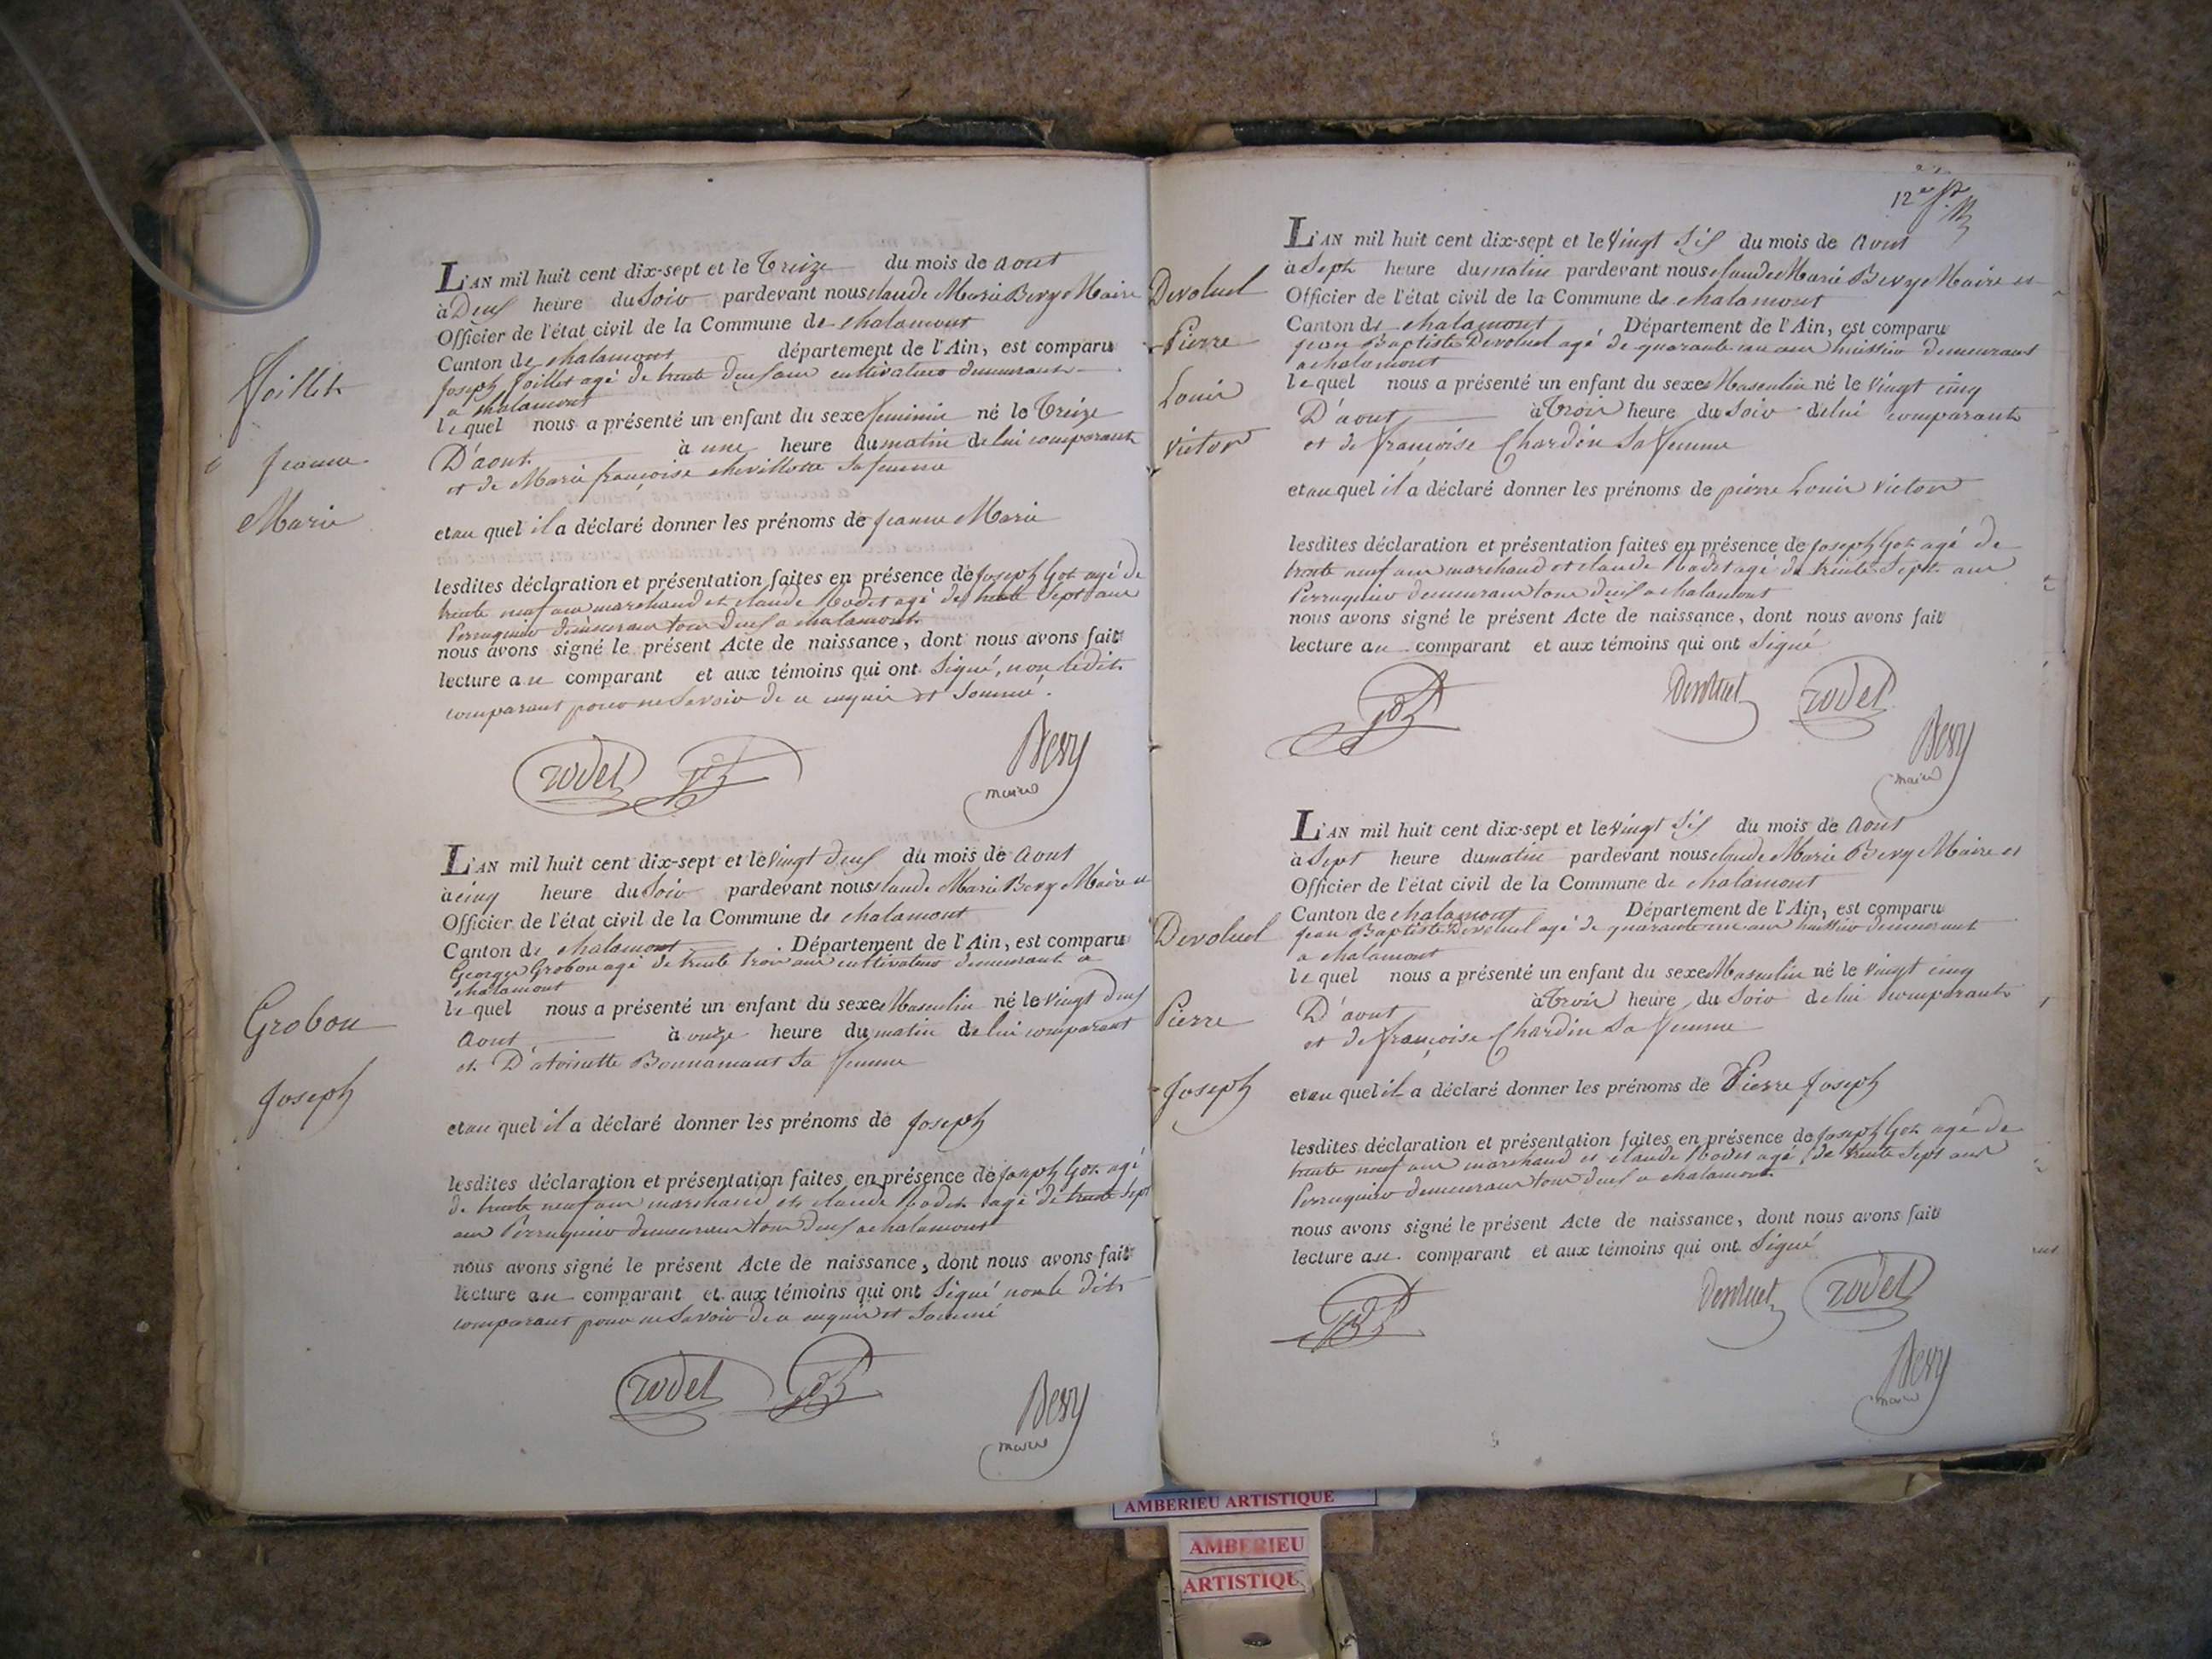 Joillet
Jeanne
Marie
L'AN mil huit cent dix-sept et le Treize du mois de aout
à Deux heure du Soir pardevant nous claude Marie Bevy Maire
Officier de l'état civil de la Commune de chalamont
Canton de chalamont département de l'Ain, est comparu
Joseph Joillet agé de trente deux ans cultivateur demeurant
a chalamont
lequel nous a présenté un enfant du sexe feminin né le Treize
D'aout à une heure du matin de lui comparant
et de Marie françoise chevillotte sa femme
et au quel il a déclaré donner les prénoms de jeanne Marie
lesdites déclaration et présentation faites en présence de Joseph Got agé de
trente neuf ans marchand et claude Rodet agé de trente Sept ans
Perruquier demeurans tous deux a chalamont
nous avons signé le présent Acte de naissance, dont nous avons fait
lecture au comparant et aux témoins qui ont Signé, non ledit
comparant pour ne Savoir de ce enquis et Sommé.
rodet Bevy
maire
Grobon
Joseph
L'AN mil huit cent dix-sept et le vingt deux du mois de aout
à cinq heure du Soir pardevant nous claude Marie Bevy Maire et
Officier de l'état civil de la Commune de chalamont
Canton de chalamont . Département de l'Ain, est comparu
George Grobon agé de trente trois ans cultivateur demeurant a
chalamont
lequel nous a présenté un enfant du sexe Masculin né le vingt deux
aout à onze heure du matin de lui comparant
et D'atoinette Bonnamant sa femme
et au quel il a déclaré donner les prénoms de Joseph
lesdites déclaration et présentation faites en présence de Joseph Got agé
de trente neuf ans marchand et claude Rodet agé de trente Sept
ans Perruquier demeurans tous deux a chalamont
nous avons signé le présent Acte de naissance, dont nous avons fait
lecture au comparant et aux témoins qui ont Signé non le dit
comparant pour ne Savoir de ce enquis et Sommé
rodet Bevy
maire
12e
Devoluel
Pierre
Louis
victor
L'AN mil huit cent dix-sept et le Vingt Six du mois de aout
à Sept heure du matin pardevant nous claude Marie Bevy Maire et
Officier de l'état civil de la Commune de chalamont
Canton de chalamont , Département de l'Ain, est comparu
jean Baptiste Devoluel agé de quarante un ans huissier demeurant
a chalamont
lequel nous a présenté un enfant du sexe Masculin né le vingt cinq
D'aout à Trois heure du Soir de lui comparant
et de françoise Chardon Sa femme
et au quel il a déclaré donner les prénoms de pierre Louis victor
lesdites déclaration et présentation faites en présence de Joseph Got agé de
trente neuf ans marchand et claude Rodet agé de trente Sept ans
Perruquier demeurans tous deux a chalamont
nous avons signé le présent Acte de naissance, dont nous avons fait
lecture au comparant et aux témoins qui ont Signé
Devoluet rodet
Bevy
maire
Devoluel
Pierre
Joseph
L'AN mil huit cent dix-sept et le vingt Six du mois de aout
à Sept heure du matin pardevant nous claude Marie Bevy Maire et
Officier de l'état civil de la Commune de chalamont
Canton de chalamont Département de l'Ain, est comparu
jean Baptiste Devoluel agé de quarante un ans huissier demeurant
a chalamont
lequel nous a présenté un enfant du sexe Masculin né le vingt cinq
D'aout à Trois heure du Soir de lui comparant
et de françoise Chardin Sa femme
et au quel il a déclaré donner les prénoms de Pierre Joseph
lesdites déclaration et présentation faites en présence de Joseph Got agé de
trente neuf ans marchand et claude Rodet agé de trente Sept ans
Perruquier demeurans tous deux a chalamont
nous avons signé le présent Acte de naissance, dont nous avons fait
lecture au comparant et aux témoins qui ont Signé
Devoluet rodet
Bevy
maire
AMBERIEU ARTISTIQUE
AMBERIEU
ARTISTIQUE